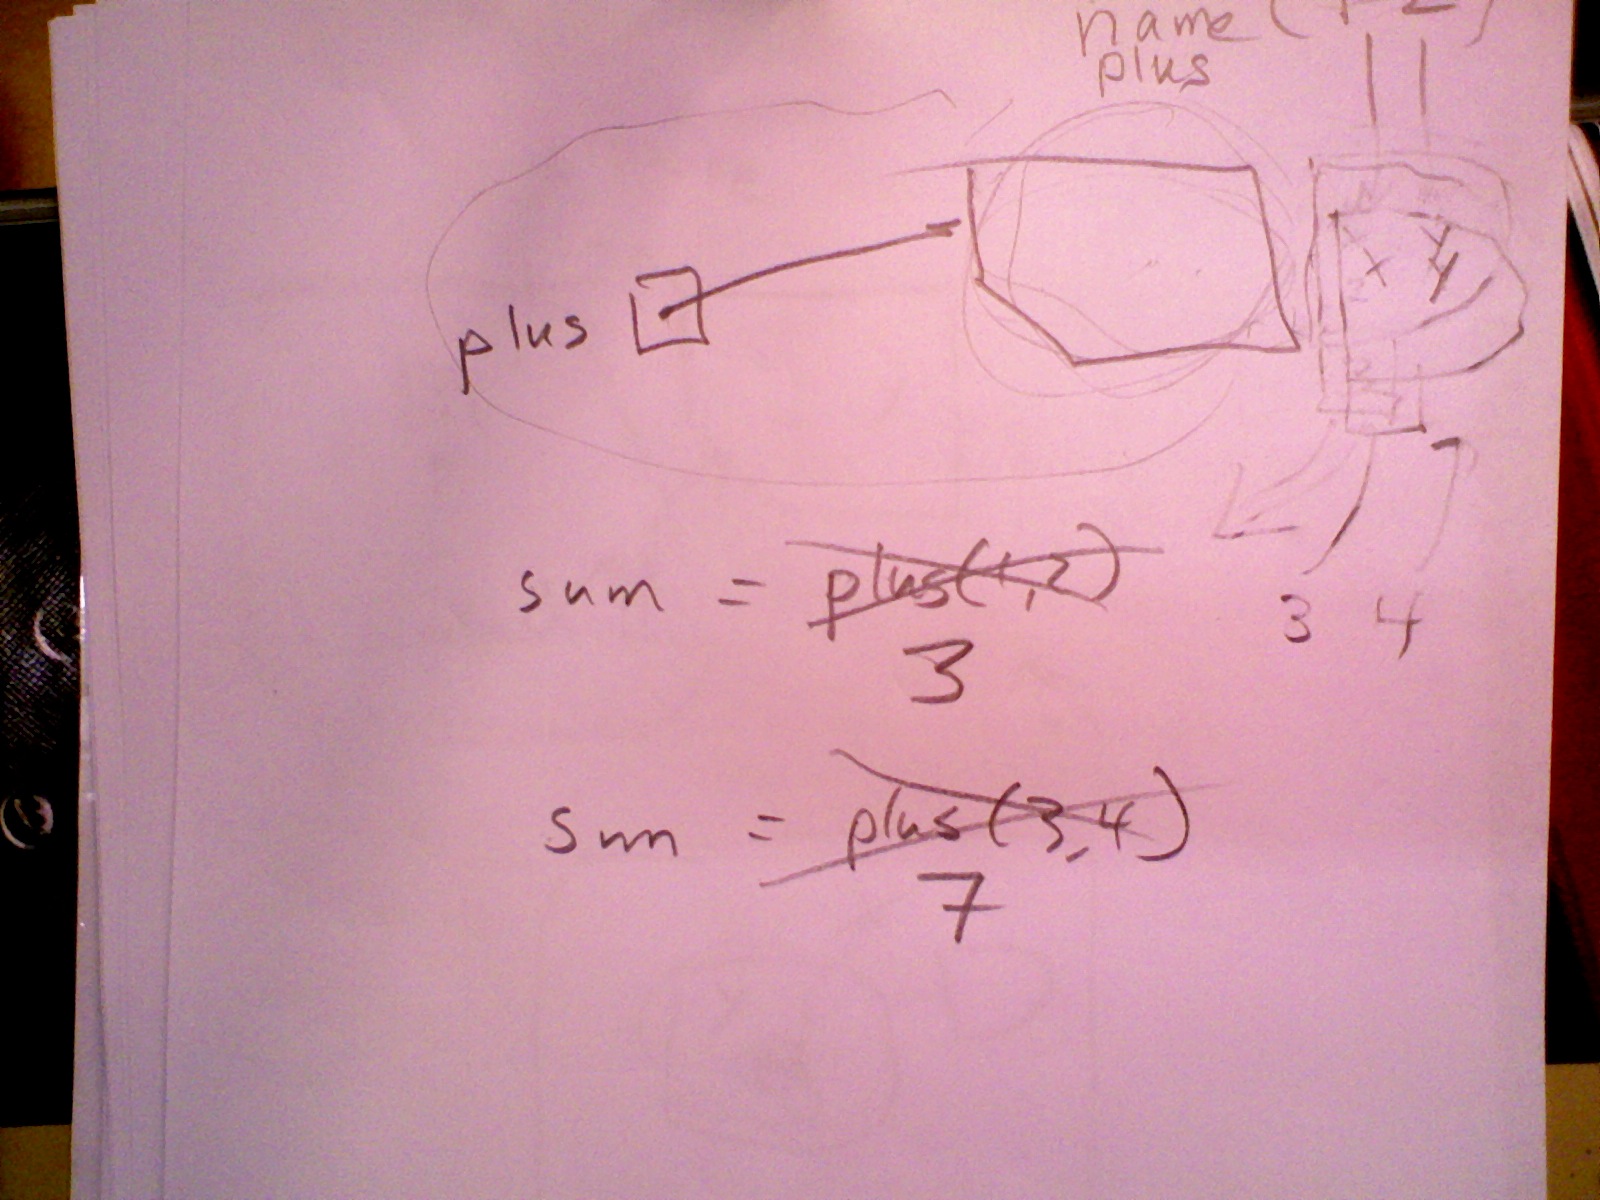 name (1 2)
plus
x y
plus
3 4
sum = plus(1,2)
3
sum = plus(3,4)
7